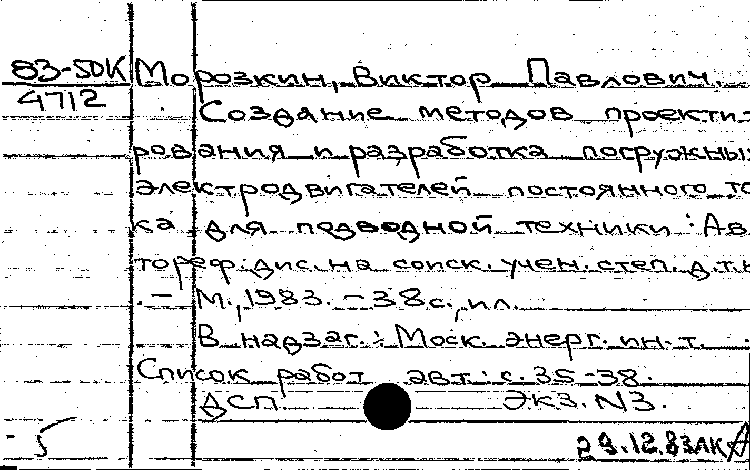 83-5DK Морозкин, Виктор Павлович.
4712 Создание методов проекти-
рования и разработка погружных
электродвигателей постоянного то-
ка для подводной техники : Ав-
тореф. дис. на соиск. учен. степ. д.т.н
. - М., 1983. - 38 с., ил.
В надзаг.: Моск. энерг. ин. т.
Список работ авт.: с. 35-38.
ДСП Экз. N3.
29.12.83